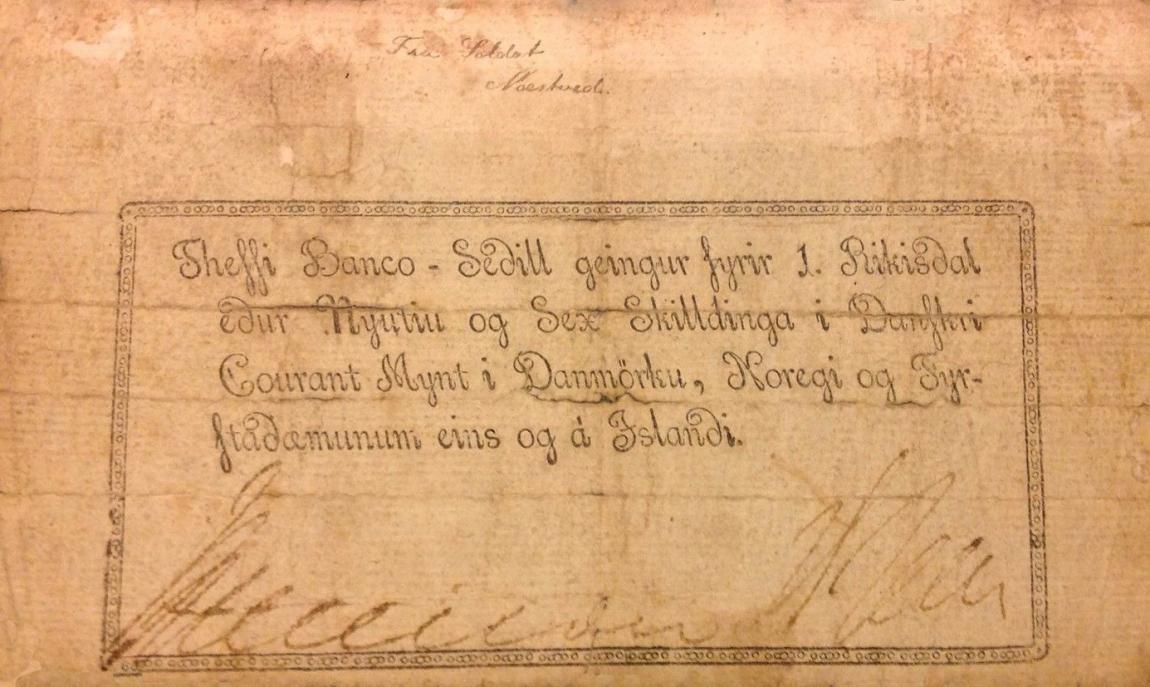 Fra Soldat
Næstved.
Theſſi Banco - Sedill geingur fyrir 1. Rikisdal
edur Nyutiu og Sex Skilldinga i Danſkri
Courant Mynt i Danmörku, Noregi og Fyr-
ſtadæmunum eins og á Islandi.